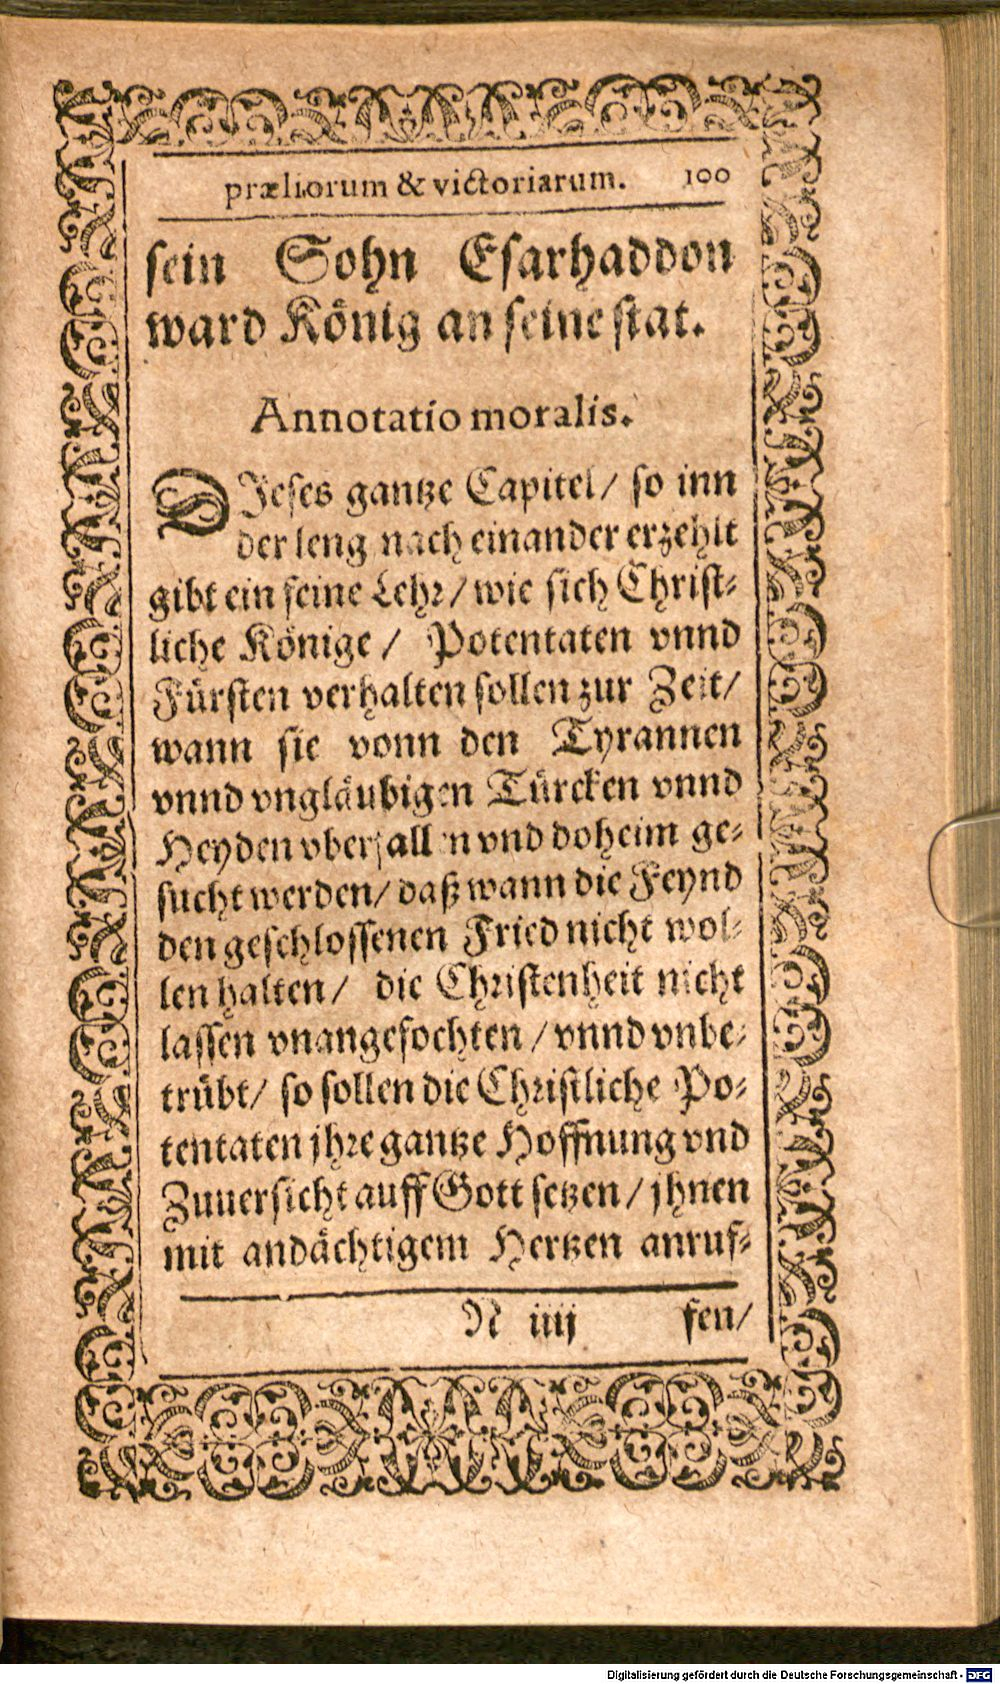 præliorum & victoriarum. 100
sein Sohn Esarhaddon
ward König an seine stat.
Annotatio moralis.
DJeses gantze Capitel/ so inn
der leng nach einander erzehlt
gibt ein feine Lehr/ wie sich Christ-
liche Könige/ Potentaten vnnd
Fürsten verhalten sollen zur Zeit/
wann sie vonn den Tyrannen
vnnd vngläubigen Türcken vnnd
Heyden vberfallen vnd doheim ge-
sucht werden/ daß wann die Feynd
den geschlossenen Fried nicht wol-
len halten/ die Christenheit nicht
lassen vnangefochten/ vnnd vnbe-
trübt/ so sollen die Christliche Po-
tentaten jhre gantze Hoffnung vnd
Zuuersicht auff Gott setzen/ jhnen
mit andächtigem Hertzen anruf-
N iiij fen/
Digitalisierung gefördert durch die Deutsche Forschungsgemeinschaft - DFG